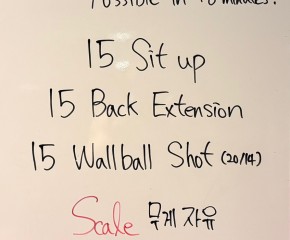 Possible in 10 minutes!
15 Sit up
15 Back Extension
15 Wallball Shot (20/14)
Scale 무게 자유